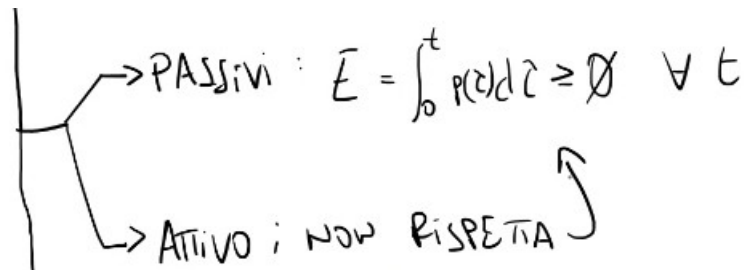 PASSIVI : E = ∫₀ᵗ p(τ)dτ ≥ 0 ∀ t
ATTIVO ; NON RISPETTA